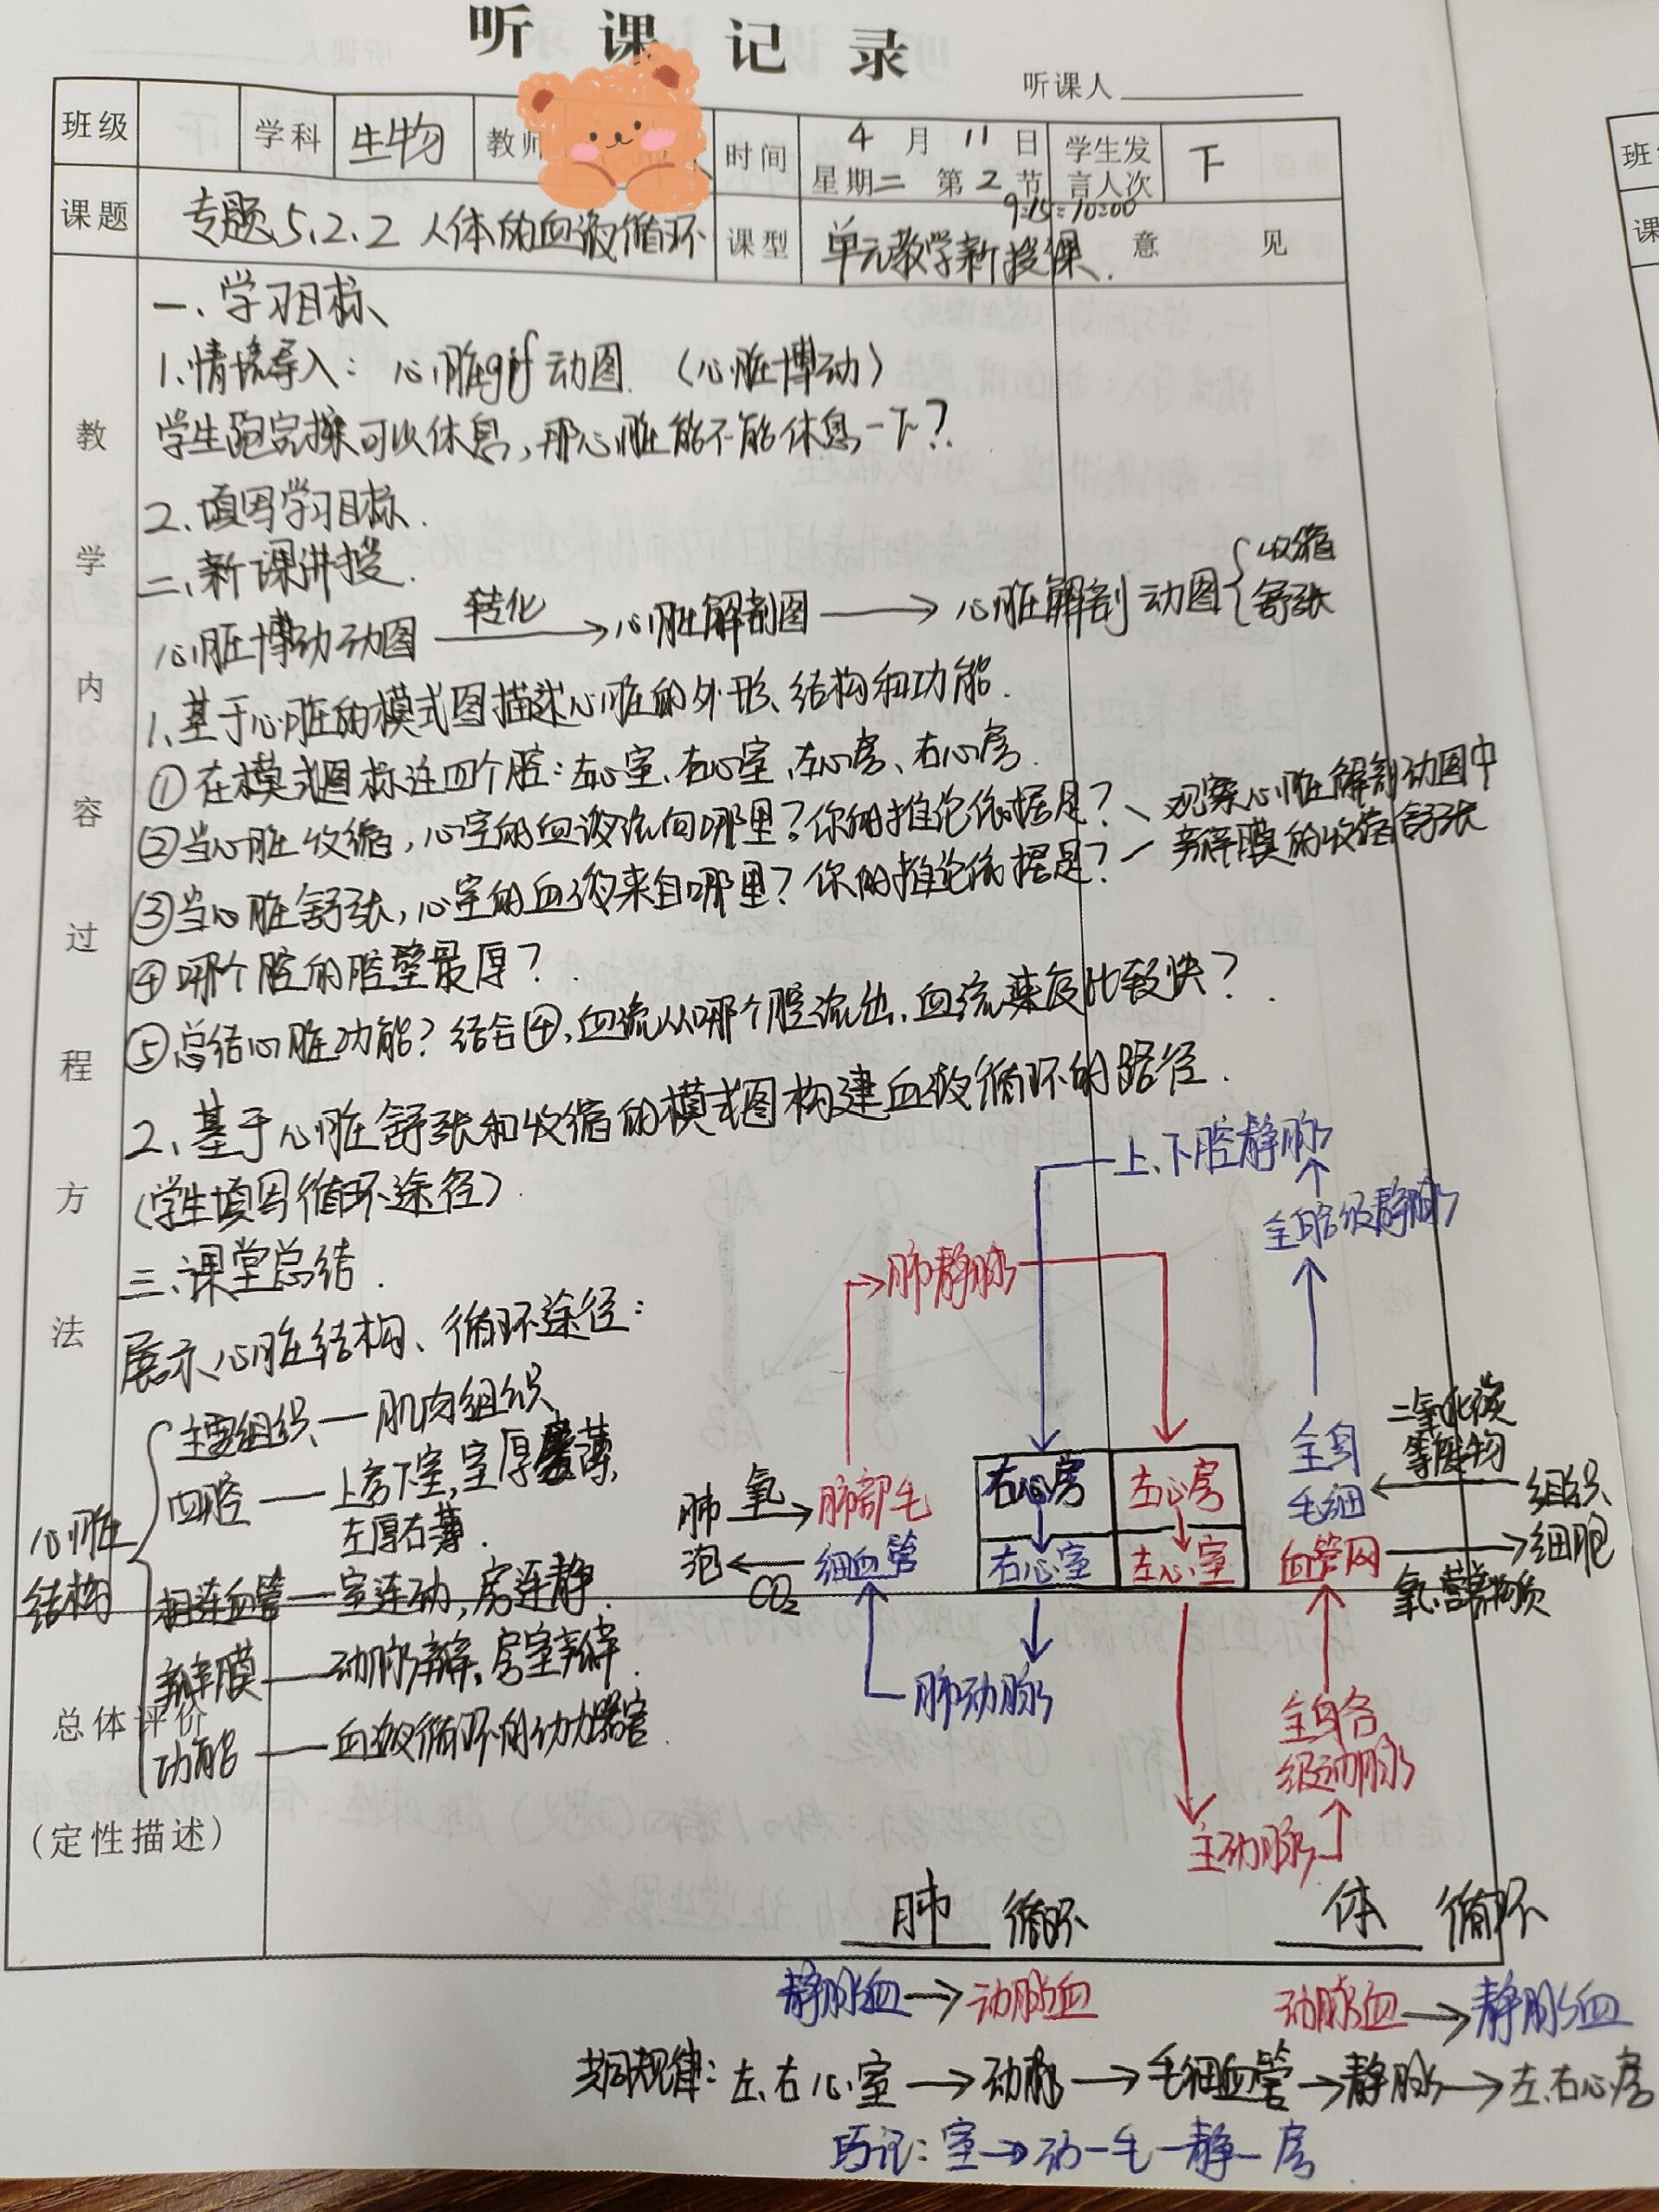 听课记录
听课人
班级 学科 生物 教师 时间 4月11日 星期二 第2节 学生发言人次 下
9:15-10:00
课题 专题5.2.2 人体的血液循环 课型 单元教学新授课. 意见
教学内容过程方法
一、学习目标
1、情境导入: 心脏gif动图. (心脏博动)
学生跑完操可以休息,那心脏能不能休息一下?
2、填写学习目标.
二、新课讲授.
心脏博动动图 转化→ 心脏解剖图 → 心脏解剖动图 { 收缩 舒张
1、基于心脏的模式图描述心脏的外形、结构和功能.
①在模式图标注四个腔:左心室、右心室、左心房、右心房.
②当心脏收缩,心室的血液流向哪里?你的推论依据是? 观察心脏解剖动图中
③当心脏舒张,心室的血液来自哪里?你的推论依据是? 瓣膜的收缩舒张
④哪个腔的腔壁最厚?
⑤总结心脏功能?结合④,血流从哪个腔流出,血流速度比较快?
2、基于心脏舒张和收缩的模式图构建血液循环的路径.
(学生填写循环途径).
三、课堂总结.
展示心脏结构、循环途径:
心脏结构
主要组织—肌肉组织
四腔—上房下室,室厚房薄,
左厚右薄.
相连血管—室连动,房连静.
瓣膜—动脉瓣,房室瓣.
功能—血液循环的动力器官.
总体评价
(定性描述)
上、下腔静脉
全身各级静脉
肺静脉
肺泡 氧→ 肺部毛细血管
←CO₂
右心房 左心房
右心室 左心室
全身毛细血管网
二氧化碳等废物
组织细胞
氧、营养物质
肺动脉
全身各级动脉
主动脉
肺 循环 体 循环
静脉血→动脉血 动脉血→静脉血
共同规律:左、右心室→动脉→毛细血管→静脉→左、右心房
巧记:室→动—毛—静—房